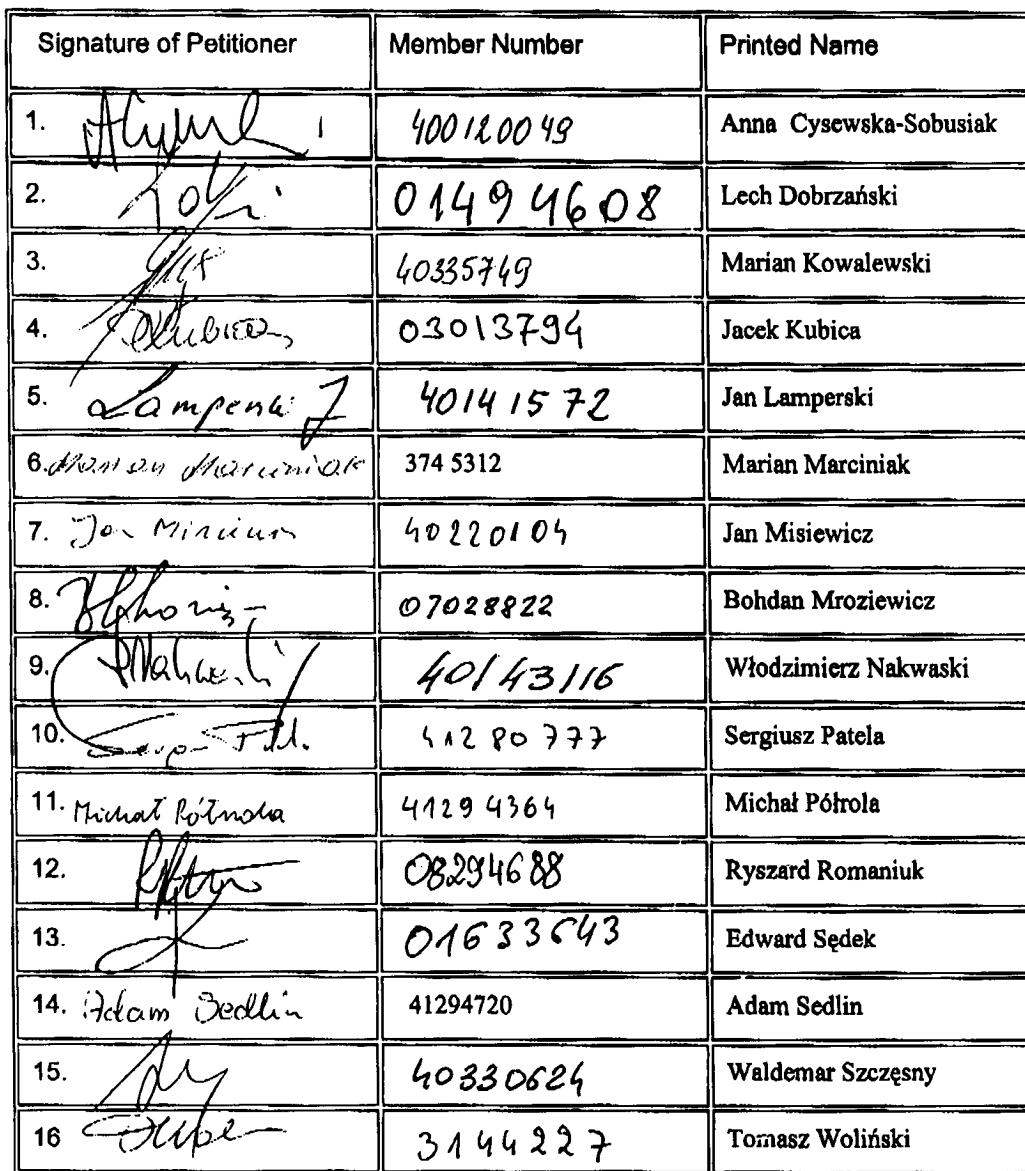 Signature of Petitioner Member Number Printed Name
1. 400120049 Anna Cysewska-Sobusiak
2. 01494608 Lech Dobrzański
3. 40335749 Marian Kowalewski
4. 03013794 Jacek Kubica
5. Lamperski J 40141572 Jan Lamperski
6. Marian Marciniak 374 5312 Marian Marciniak
7. Jan 40220104 Jan Misiewicz
8. 07028822 Bohdan Mroziewicz
9. 40143116 Włodzimierz Nakwaski
10. 41280777 Sergiusz Patela
11. Michał Półrola 41294364 Michał Półrola
12. 08294688 Ryszard Romaniuk
13. Edward Sędek
14. Adam Sedlin 41294720 Adam Sedlin
15. 40330624 Waldemar Szczęsny
16 3144227 Tomasz Woliński